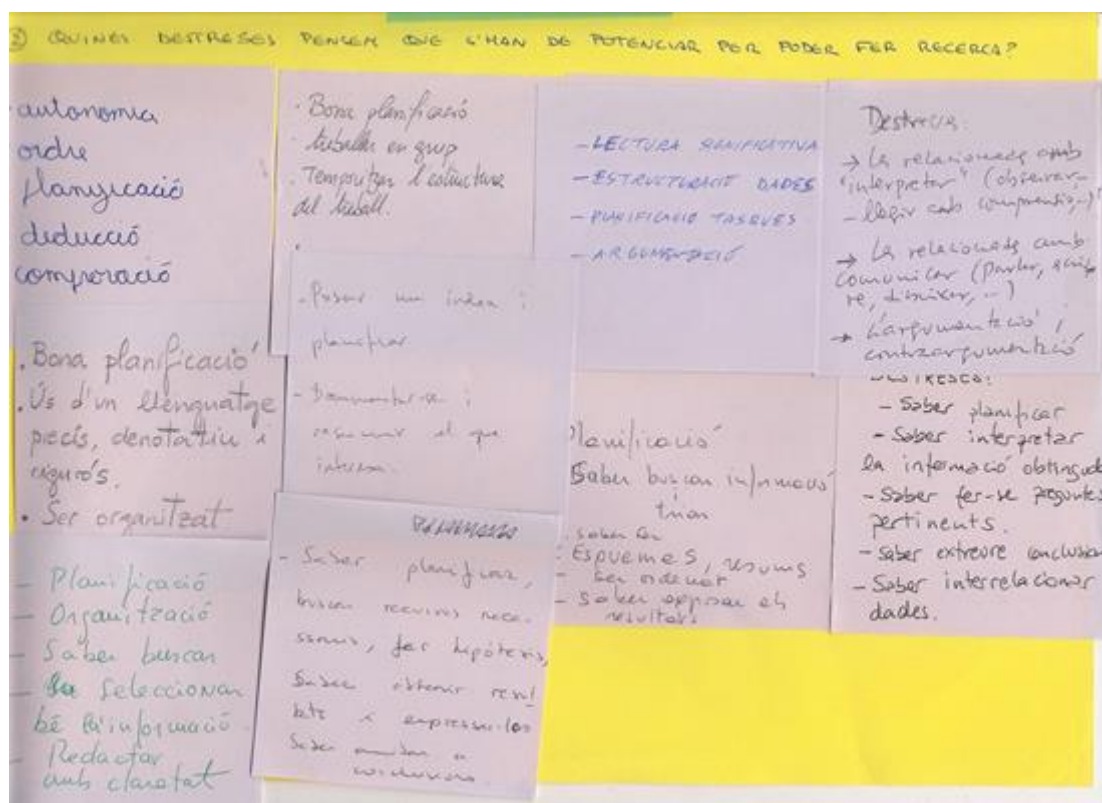 2) QUINES DESTRESES PENSEM QUE S'HAN DE POTENCIAR PER PODER FER RECERCA?
autonomia
ordre
planificació
deducció
comparació
. Bona planificació
. Ús d'un llenguatge
precís, denotatiu i
rigurós.
. Ser organitzat
- Planificació
- Organització
- Saber buscar
- Seleccionar
bé la informació
- Redactar
amb claretat
. Bona planificació
. treballar en grup
. Temporitzar l'estructura
del treball.
. Posar un índex i
planificar
- Documentar-se i
resumir el que
interessa.
- Saber planificar,
buscar recursos neces-
saris, fer hipótesis,
Saber obtenir resul
tats i expressar-los
Saber arribar a
conclusions.
- LECTURA SIGNIFICATIVA
- ESTRUCTURACIÓ DADES
- PLANIFICACIÓ TASQUES
- ARGUMENTACIÓ
Planificació
Saber buscar informació
triar
. saber fer
. Esquemes, resums
- Ser ordenat
- Saber exposar els
resultats
Destreses:
→ La relacionada amb
"interpretar" (observar,
llegir amb comprensió,..)
→ La relacionada amb
comunicar (parlar, escriu
re, dibuixar, ..)
→ L'argumentació i
contraargumentació
DESTRESES:
- Saber planificar
- Saber interpretar
la informació obtinguda
- Saber fer-se preguntes
pertinents.
- Saber extreure conclusions
- Saber interrelacionar
dades.